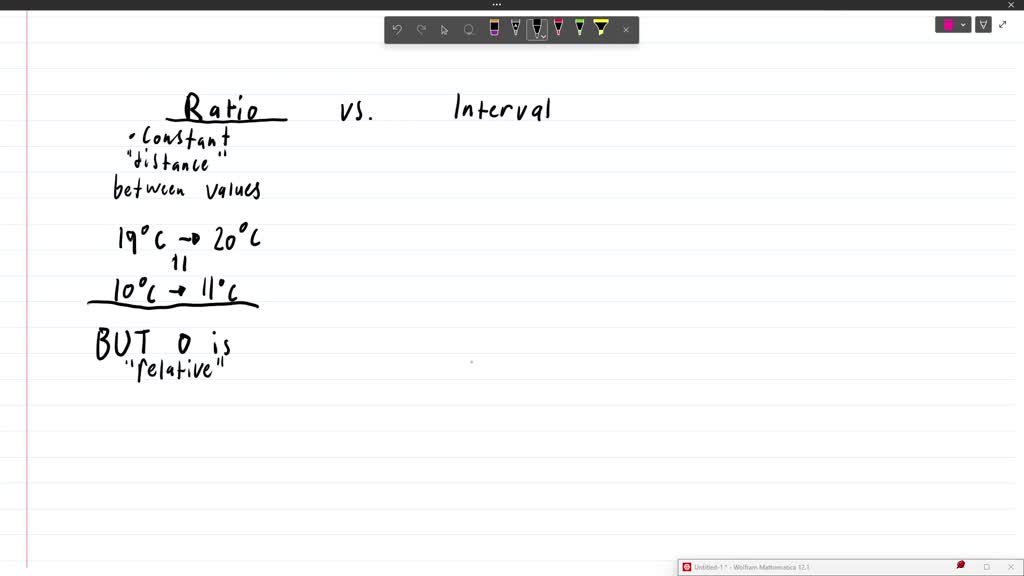 Ratio vs. Interval
• Constant
"distance"
between values
19°C → 20°C
=
10°C → 11°C
BUT 0 is
"relative"
Untitled-1 * - Wolfram Mathematica 12.1